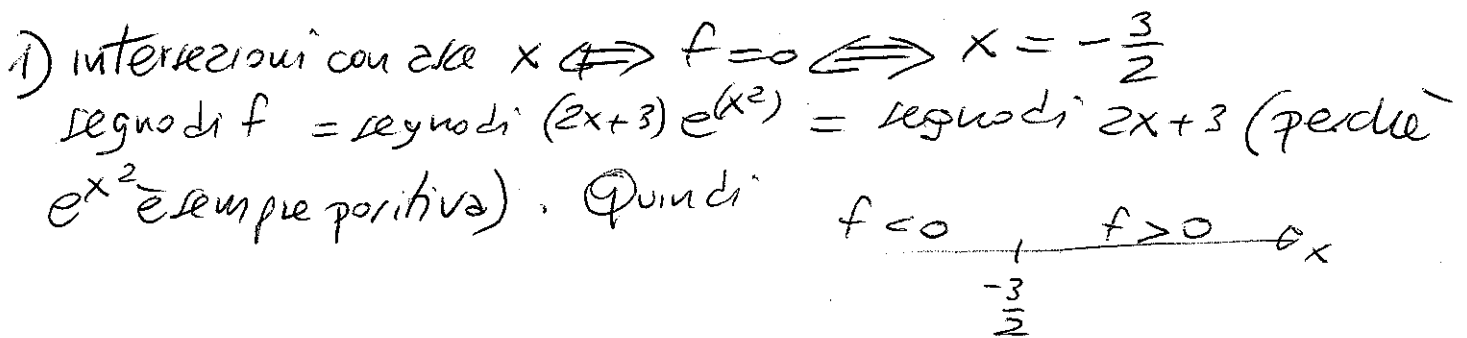 1) intersezioni con asse x ⟺ f=0 ⟺ x = -3/2
segno di f = segno di (2x+3) e^(x²) = segno di 2x+3 (perchè
e^x² è sempre positiva). Quindi
f<0 f>0 x
-3/2